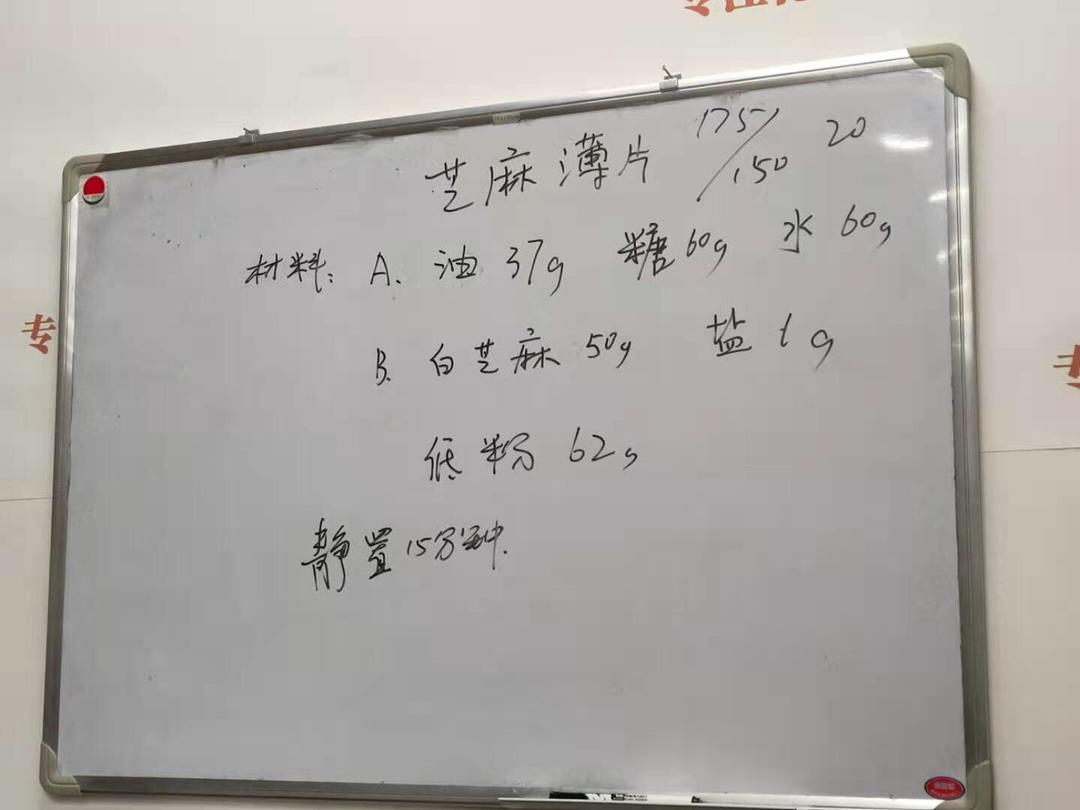 专用
芝麻薄片 175/150 20
材料: A. 油 37g 糖 60g 水 60g
专
B. 白芝麻 50g 盐 1g
专
低粉 62g
静置15分钟.